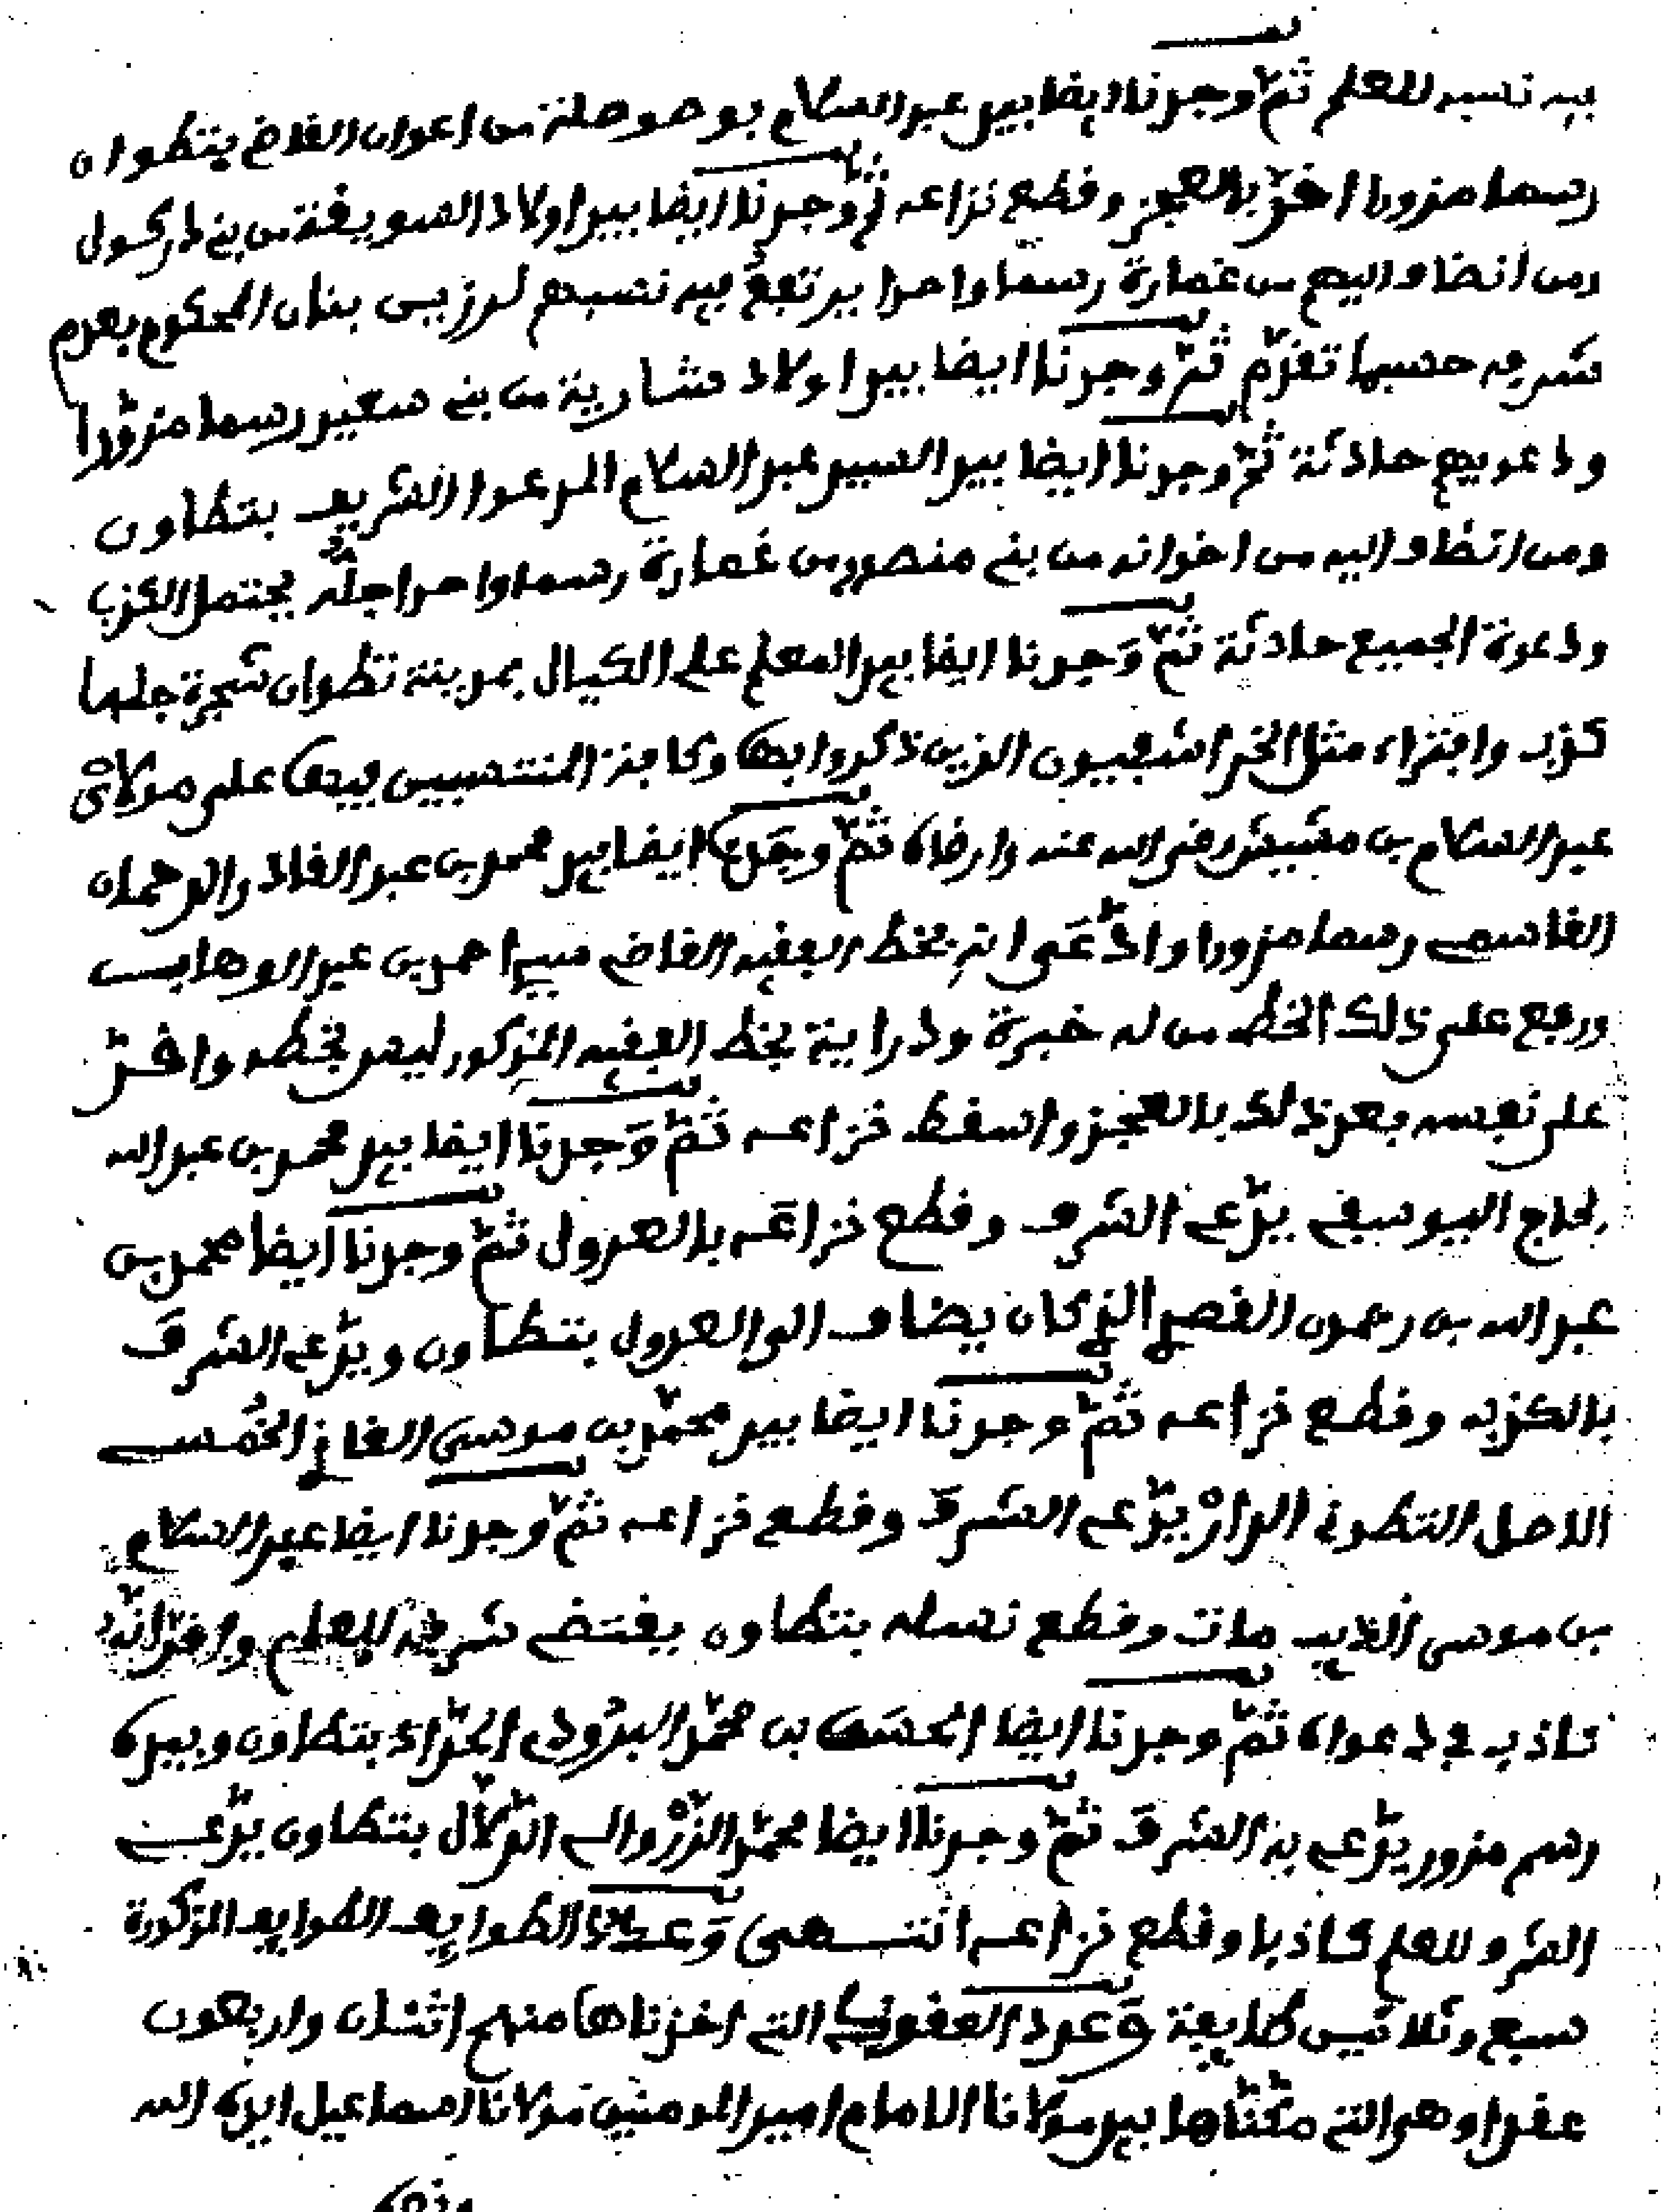 فيه نسبه للعلم ثمّ وجدنا ايضا بيد عبد السلام بوصوصلة من اعوان القاضي بتطوان
رسما مزورا اقرّ بالعجز وقطع نزاعه ثمّ وجدنا ايضا بيد اولاد السويقة من بني
ومن انضاف اليهم من غمارة رسما واحدا يرتفع فيه نسبهم لرزيـى بنان المحكوم بعدم
شرفه حسبما تقدّم ثمّ وجدنا ايضا بيد اولاد مشارية من بني سعيد رسما مزوّرا
ودعويهم حادثة ثمّ وجدنا ايضا بيد السيد عبد السلام المدعوا الشريف بتطاون
ومن انضاف اليه من اخوانه من بني منصور من غمارة رسما واحدا جلّه يحتمل الكذب
ودعوة الجميع حادثة ثمّ وَجدنا ايضا بيد المعلم علي الكيال بمدينة تطوان شجرة جلها
كذب وافتراء مثل الخراشفيون الذين ذكروا بها وكافة المنتسبين فيها على مولاي
عبد السلام بن مشيش رضي الله عنه وارضاه ثمّ وجَدنا ايضا بيد محمد بن عبد القادر الرحمان
القاسمي رسما مزورا وادّعَى انه بخط الفقيه القاضي سيدي احمد بن عبد الوهاب
ورفع على ذلك الخط من له خبرة ودراية بخط الفقيه المذكور ليس بخطه واقـرّ
على نفسه بعد ذلك بالعجز واسقط نزاعـه ثمّ وَجدنا ايضا بيد محمد بن عبد الله
لحاج اليوسفي يدّعي الشرف وقطع نزاعَه بالعدول ثمّ وجدنا ايضا محمد بن
عبد الله بن رحمون القصري الذي كان يضاف الى العدول بتطاون ويدّعي الشرفَ
بالكذب وقطع نزاعه ثمّ وجدنا ايضا بيد محمّد بن موسى الغازي الخُمسي
الاصل التطوني الدار يدّعي الشرفَ وقطع نزاعه ثمّ وجدنا ايضا عبد السلام
بن موسى مات وقطع نسله بتطاون يقتضي شرفه للعلم واقرّ انّه
كاذب في دعواه ثمّ وجدنا ايضا الحسَن بن محمّد البدّوري الحرّار بتطاون وبيده
رسم مزور يدّعي به الشرفَ ثمّ وجدنا ايضا محمّد الزّرْوالي الدّلّال بتطاون يدّعـي
الشرف للعلم كاذبا وقطع نزاعه انتـهى وَعدد الطوايف الطوايف المذكورة
سبع وثلاثين طايفة وَعدد العقود التي اخذناها منهم اثنان واربعون
عقدا وهو التي مكنّاها بيد مولانا الامام امير المومنين مَولانا اسماعيل ايده الله